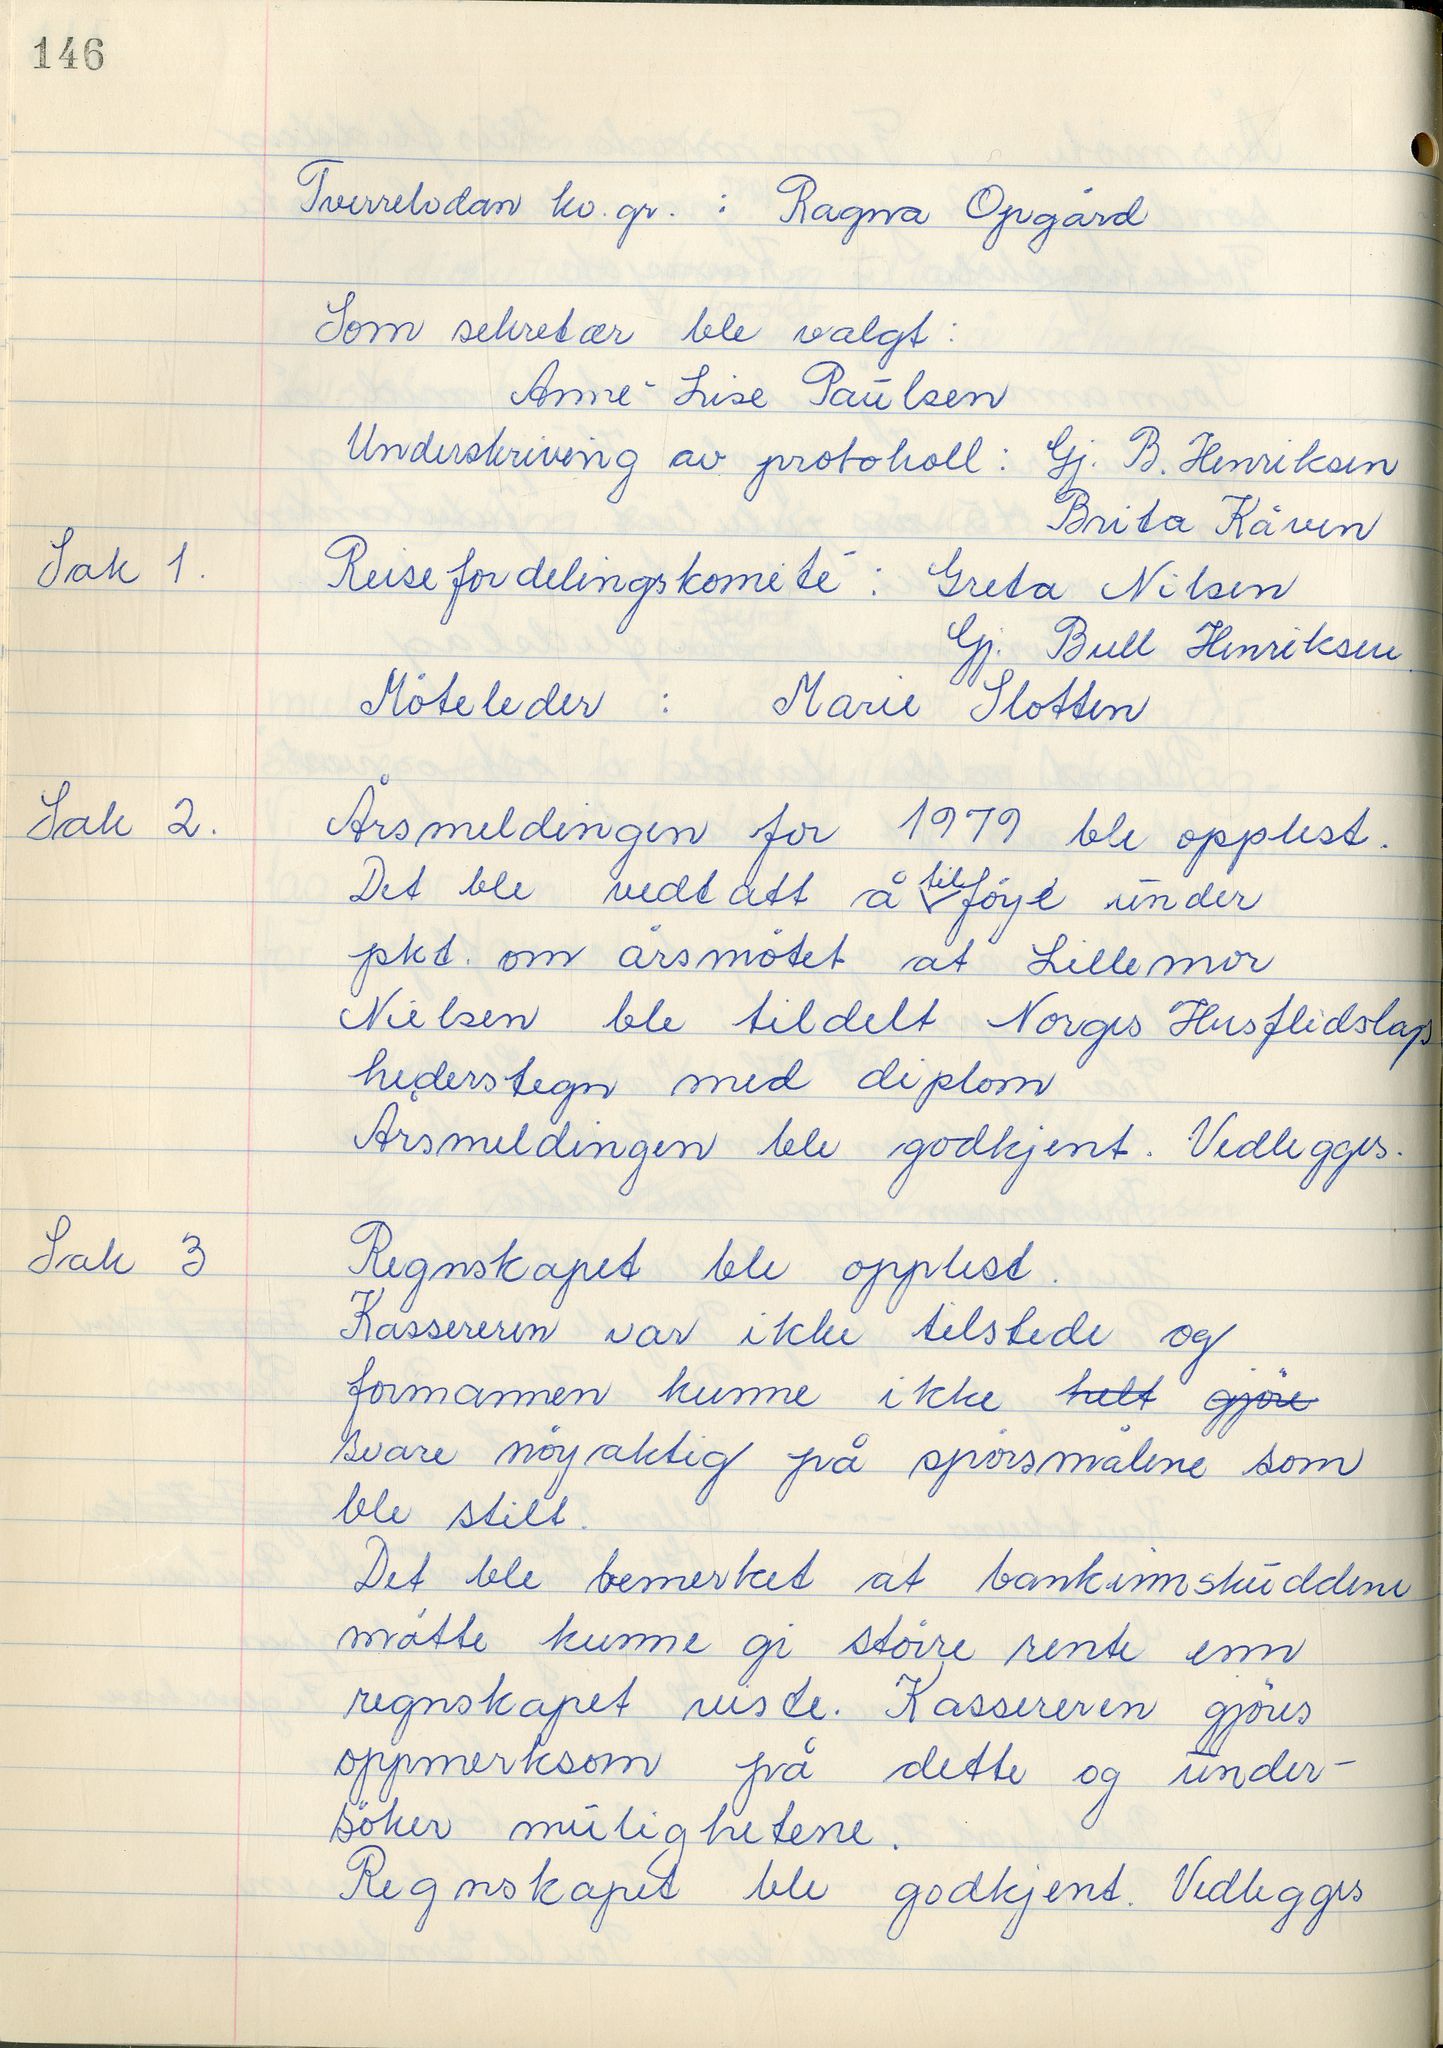 146
Tverrelvdan kv. gr. : Ragna Opgård
Som sekretær ble valgt:
Anne-Lise Paulsen
Underskriving av protokoll: Gj. B. Henriksen
Brita Kåven
Sak 1. Reisefordelingskomité: Greta Nilsen
Gj. Bull Henriksen
Möteleder : Marie Slotten
Sak 2. Årsmeldingen for 1979 ble opplest.
Det ble vedtatt å tilföye under
pkt. om årsmötet at Lillemor
Nielsen ble tildelt Norges Husflidslags
hederstegn med diplom
Årsmeldingen ble godkjent. Vedlegges.
Sak 3 Regnskapet ble opplest.
Kassereren var ikke tilstede og
formannen kunne ikke helt gjöre
svare nöyaktig på spörsmålene som
ble stilt.
Det ble bemerket at bankinnskuddene
måtte kunne gi större rente enn
regnskapet viste. Kassereren gjöres
oppmerksom på dette og under-
söker mulighetene.
Regnskapet ble godkjent. Vedlegges